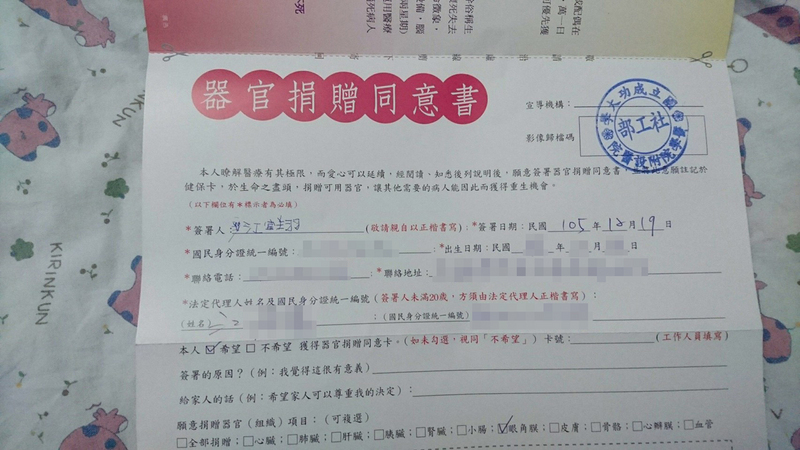 器官捐贈同意書
宣導機構：
影像歸檔碼
國立成功大學醫學院附設醫院
社工部
本人瞭解醫療有其極限，而愛心可以延續，經閱讀、知悉後列說明後，願意簽署器官捐贈同意書，並將此意願註記於
健保卡，於生命之盡頭，捐贈可用器官，讓其他需要的病人能因此而獲得重生機會。
（以下欄位有＊標示者為必填）
*簽署人（敬請親自以正楷書寫）：*簽署日期：民國105年12月19日
*國民身分證統一編號：：*出生日期：民國 年 月 日
*聯絡電話：：*聯絡地址：
*法定代理人姓名及國民身分證統一編號（簽署人未滿20歲，方須由法定代理人正楷書寫）：
（姓名）：（國民身分證統一編號）
本人☑希望☐不希望 獲得器官捐贈同意卡。（如未勾選，視同「不希望」）卡號：（工作人員填寫）
簽署的原因？（例：我覺得這很有意義）
給家人的話（例：希望家人可以尊重我的決定）：
願意捐贈器官（組織）項目：（可複選）
☐全部捐贈；☐心臟；☐肺臟；☐肝臟；☐胰臟；☐腎臟；☐小腸；☑眼角膜；☐皮膚；☐骨骼；☐心瓣膜；☐血管
KIRINKUN
KIRINKUN